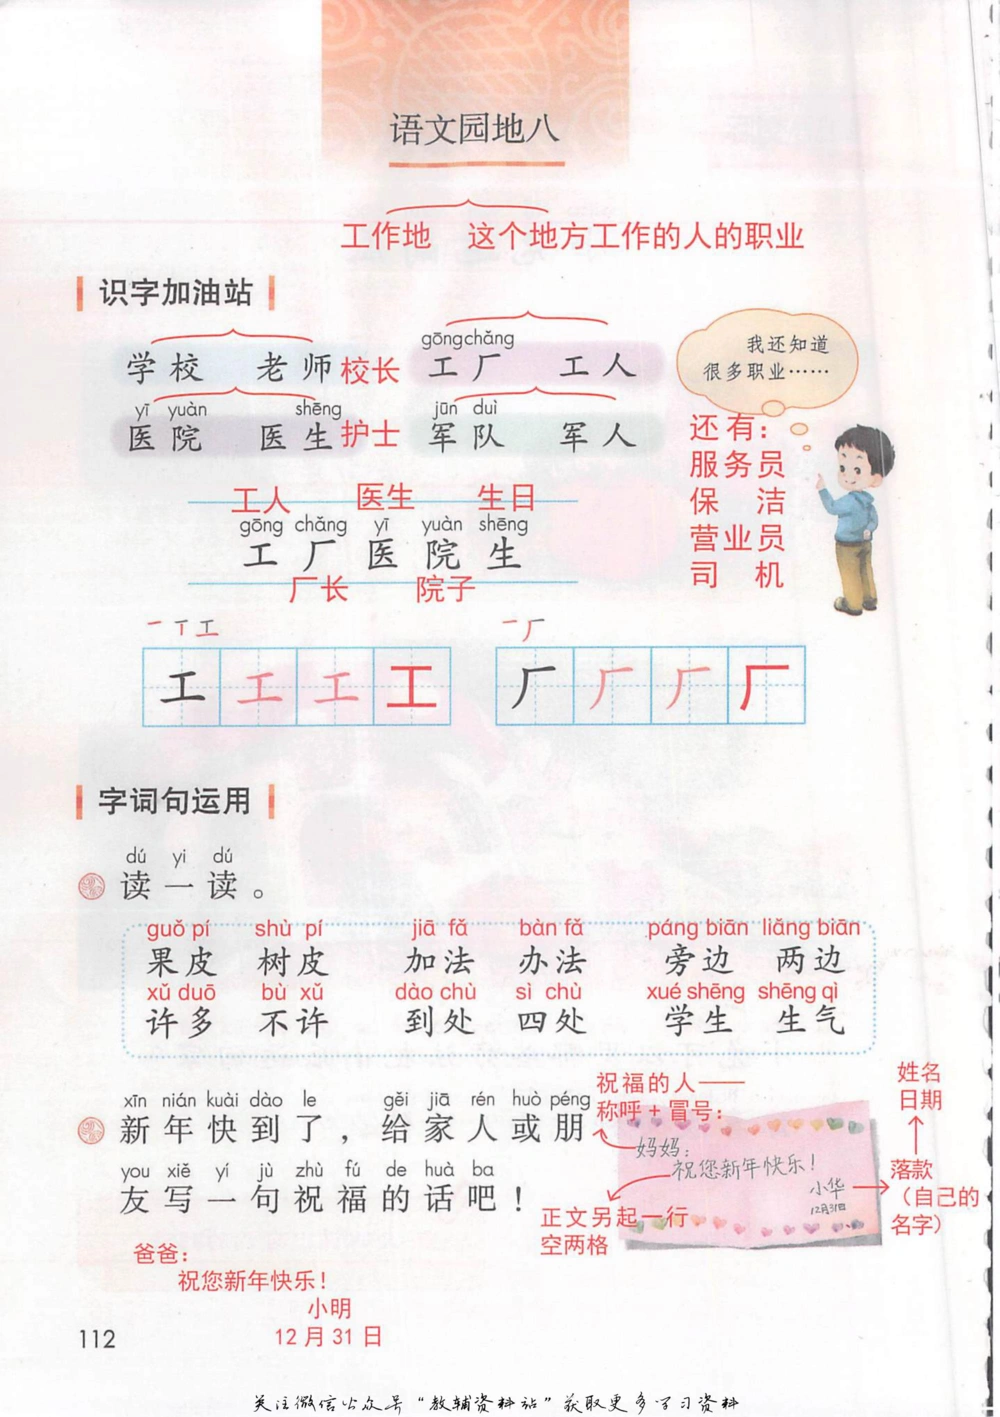 语文园地八
工作地 这个地方工作的人的职业
识字加油站
gōng chǎng
学校 老师 校长 工厂 工人
我还知道
很多职业……
yī yuàn shēng jūn duì
医院 医生 护士 军队 军人
还有：
服务员
保洁
营业员
司机
工人 医生 生日
gōng chǎng yī yuàn shēng
工 厂 医 院 生
厂长 院子
一 丅 工 一 厂
工 工 工 工 厂 厂 厂 厂
字词句运用
dú yi dú
读一读。
guǒ pí shù pí jiā fǎ bàn fǎ páng biān liǎng biān
果皮 树皮 加法 办法 旁边 两边
xǔ duō bù xǔ dào chù sì chù xué shēng shēng qì
许多 不许 到处 四处 学生 生气
xīn nián kuài dào le gěi jiā rén huò péng
新年快到了，给家人或朋
you xiě yí jù zhù fú de huà ba
友写一句祝福的话吧！
祝福的人——
称呼+冒号：
妈妈：
祝您新年快乐！
小华
12月31日
姓名
日期
落款
（自己的
名字）
正文另起一行
空两格
爸爸：
祝您新年快乐！
小明
12月31日
112
关注微信公众号“教辅资料站”获取更多学习资料